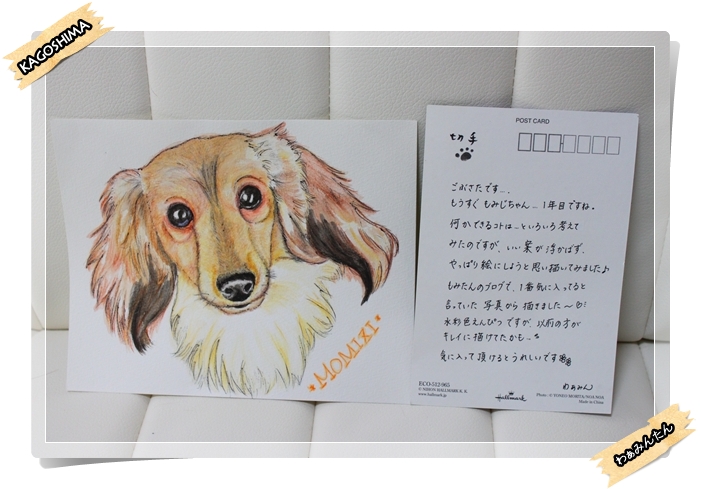 KAGOSHIMA
*MOMIXI*
POST CARD
切手
ごぶさたです...
もうすぐ もみじちゃん... 1年目ですね。
何かできるコトは...といろいろ考えて
みたのですが、いい案が浮かばず、
やっぱり絵にしようと思い描いてみました♪
もみたんのブログで、1番気に入ってると
言っていた 写真から 描きました〜
水彩色えんぴつですが、以前の方が
キレイに描けてたかも...
気に入って頂けるとうれしいです
わぁみん
ECO-512-965
© NIHON HALLMARK K. K.
www.hallmark.jp
Hallmark
Photo : © YONEO MORITA/NOA-NOA
Made in China
わぁみんたん